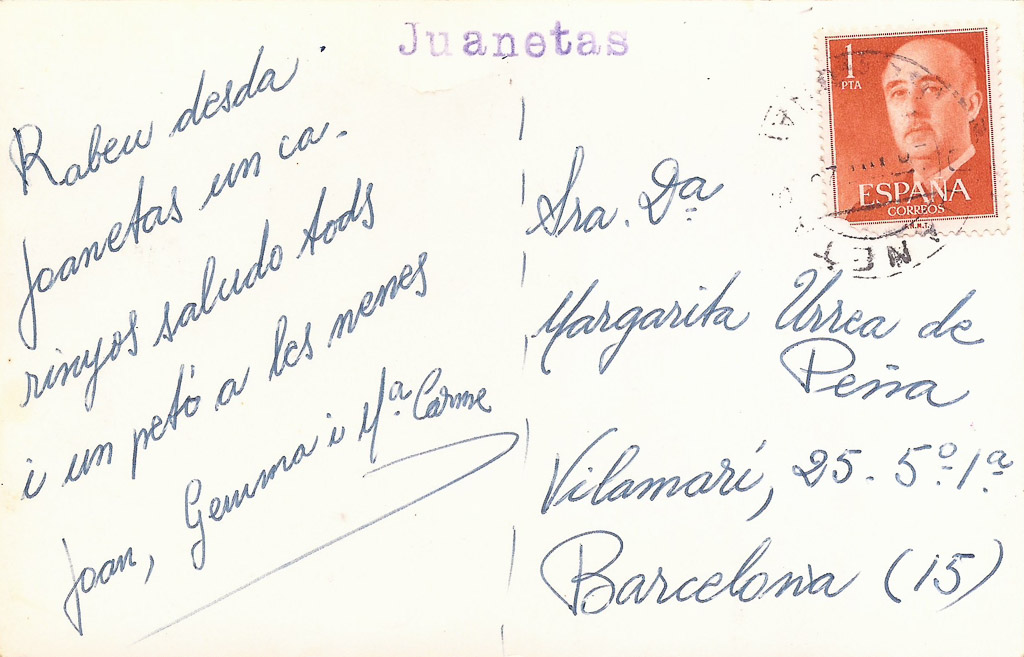 Juanetas
Rabeu desda
Joanetas un ca-
rinyos saludo tods
i un petó a les nenes
Joan, Gemma i Mª Carme
1
PTA
ESPAÑA
CORREOS
F.N.M.T.
Sra. Dª
Margarita Urrea de
Peña
Vilamarí, 25. 5º. 1ª.
Barcelona (15)